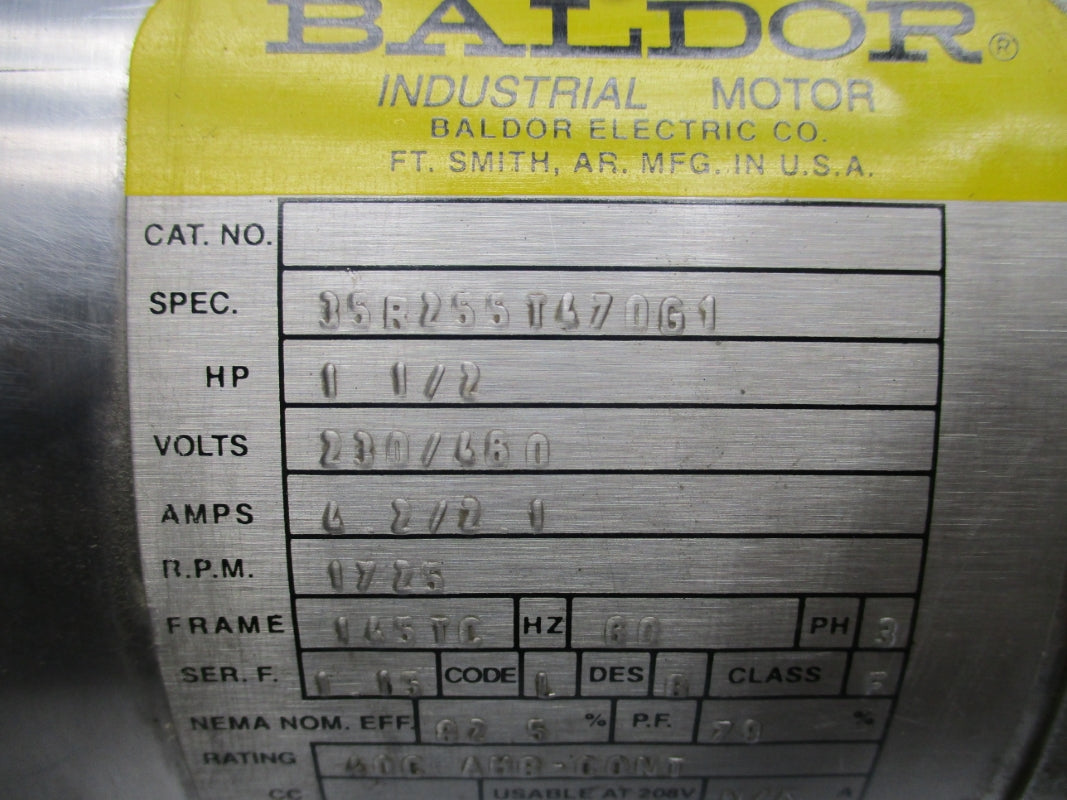 BALDOR®
INDUSTRIAL MOTOR
BALDOR ELECTRIC CO.
FT. SMITH, AR. MFG. IN U.S.A.
CAT. NO.
SPEC. 35R255T470G1
HP 1 1/2
VOLTS 230/460
AMPS 4 2/2 1
R.P.M. 1725
FRAME 145TC HZ 60 PH 3
SER. F. 1 15 CODE L DES B CLASS F
NEMA NOM. EFF. 82 5 % P.F. %
RATING 40C AMB-CONT
CC USABLE AT 208V A